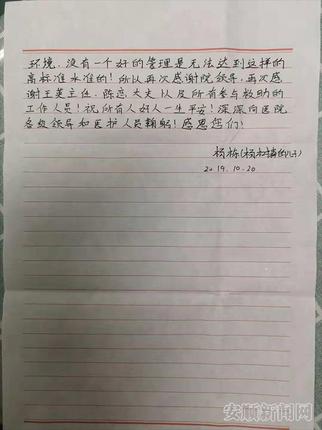 环境，没有一个好的管理是无法达到这样的
高标准水准的！所以再次感谢院领导，再次感
谢王英主任、陈彦大夫以及所有参与救助的
工作人员！祝所有人好人一生平安！深深向医院
各级领导和医护人员鞠躬！感恩您们！
杨栋(杨 的儿子)
2019.10.20
安顺新闻网